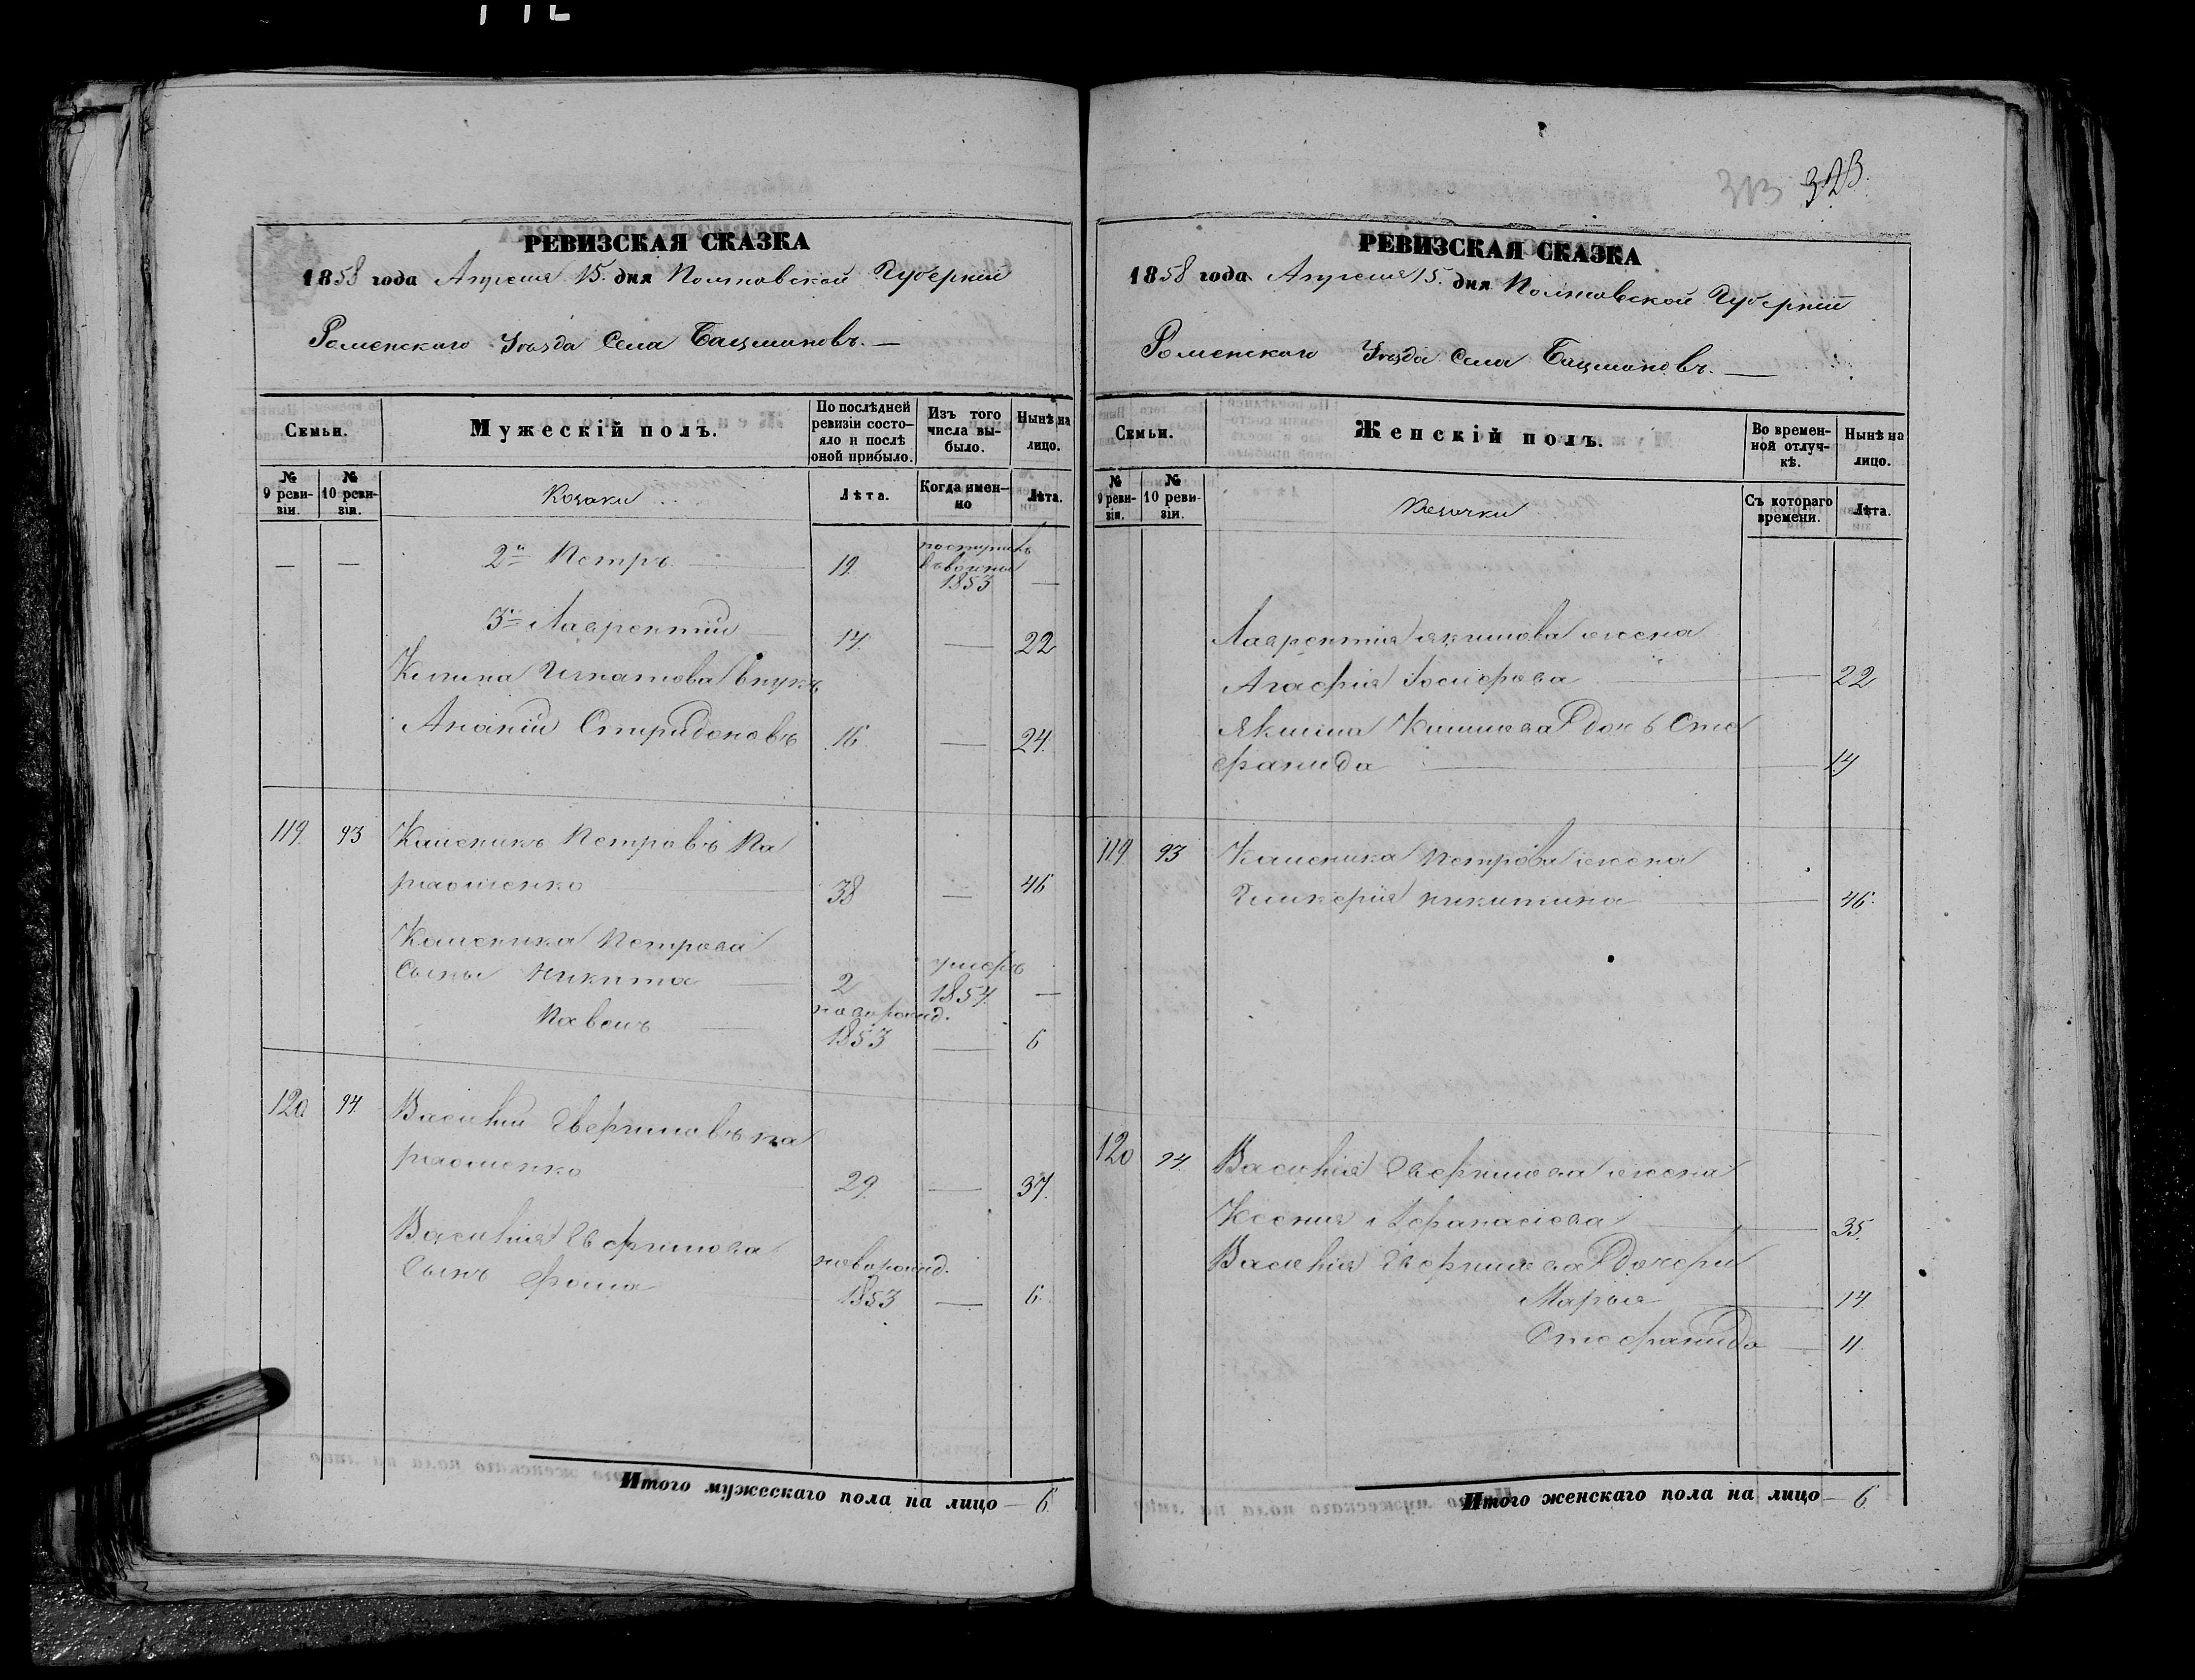 313 323.
РЕВИЗСКАЯ СКАЗКА
1858 года Апреля 15. дня Полтовской Губернии
Роменского Уезда Села Бацмановъ. —
Семьи.
Мужескій полъ.
По послѣдней ревизіи состояло и послѣ оной прибыло.
Изъ того числа выбыло.
Нынѣ на лицо.
№ 9 ревизіи.
№ 10 ревизіи.
Козаки
Лѣта.
Когда именно
Лѣта.
— — 2й Петръ 19. поступилъ 1853 —
3й Лаврентий 14. — 22
Игнатова внукъ
Ананий Спиридоновъ 16 — 24.
119. 93 Каленикъ Петровъ Па
38 — 46
Каленика Петрова
Сыны Никита 2 умеръ 1854. —
Павелъ новорожд. 1853 — 6
120 94 Василий Евфимовъ Па
29. — 37.
Василия Евфимова
Сынъ Фома новорожд. 1853 — 6.
Итого мужескаго пола на лицо — 6.
РЕВИЗСКАЯ СКАЗКА
1858 года Апреля 15. дня Полтовской Губернии
Роменского Уезда Села Бацмановъ. —
Семьи.
Женскій полъ.
Во временной отлучкѣ.
Нынѣ на лицо.
№ 9 ревизіи.
№ 10 ревизіи.
Козачки
Съ котораго времени.
Лѣта.
Лаврентия Якимова жена
Агафия Иосифова — 22
Якима Климова дочь Сте
фанида — 14
119 93 Каленика Петрова жена
Гликерия Никитина — 46.
120 94. Василия Евфимова жена
Ксения Афанасиева — 35.
Василия Евфимова дочери
Марья — 14.
Стефанида — 11.
Итого женскаго пола на лицо — 6.